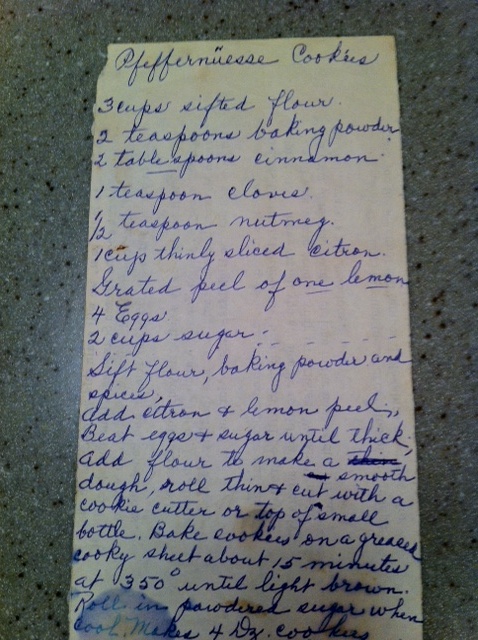 Pfeffernüesse Cookies
3 cups sifted flour.
2 teaspoons baking powder
2 tablespoons cinnamon
1 teaspoon cloves.
1/2 teaspoon nutmeg.
1 cup thinly sliced citron.
Grated peel of one lemon
4 Eggs
2 cups sugar.
Sift flour, baking powder and
spices,
add citron & lemon peel,
Beat eggs & sugar until thick,
add flour to make a thin
smooth
dough, roll thin & cut with a
cookie cutter or top of small
bottle. Bake cookies on a greased
cooky sheet about 15 minutes
at 350° until light brown.
Roll in powdered sugar when
cool. Makes 4 Dz. cookies